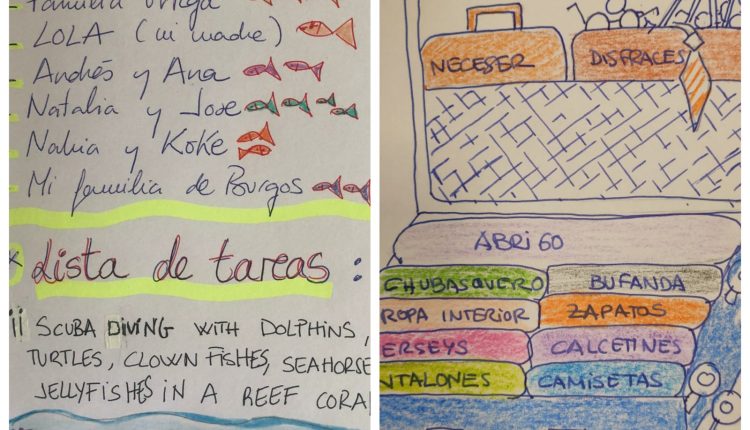 Familia Ortega
- LOLA (mi madre)
- Andrés y Ana
- Natalia y Jose
- Nahia y Koke
- Mi familia de Burgos
* Lista de tareas :
¡¡ SCUBA DIVING WITH DOLPHINS,
TURTLES, CLOWN FISHES, SEAHORSE
JELLYFISHES IN A REEF CORA
NECESER
DISFRACES
ABRIGO
CHUBASQUERO
BUFANDA
ROPA INTERIOR
ZAPATOS
ERSEYS
CALCETINES
NTALONES
CAMISETAS